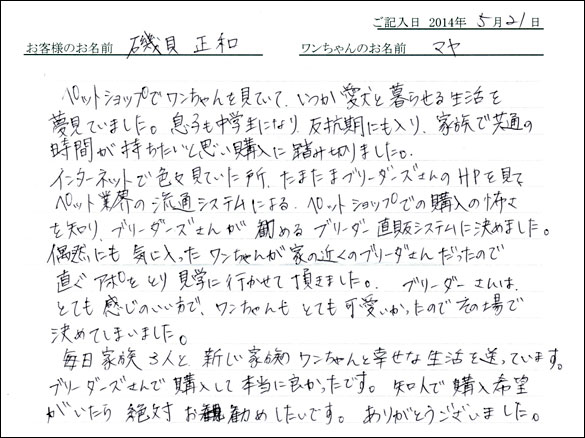 ご記入日 2014年 5月21日
お客様のお名前 磯貝 正和 ワンちゃんのお名前 マヤ
ペットショップでワンちゃんを見ていて、いつか愛犬と暮らせる生活を
夢見ていました。息子も中学生になり、反抗期にも入り、家族で共通の
時間が持ちたいと思い購入に踏み切りました。
インターネットで色々見ていた所、たまたまブリーダーズさんのHPを見て
ペット業界の流通システムによる、ペットショップでの購入の怖さ
を知り、ブリーダーズさんが勧めるブリーダー直販システムに決めました。
偶然にも気に入ったワンちゃんが家の近くのブリーダさんだったので
直ぐアポをとり見学に行かせて頂きました。ブリーダーさんは、
とても感じのいい方で、ワンちゃんもとても可愛いかったのでその場で
決めてしまいました。
毎日家族3人と新しい家族のワンちゃんと幸せな生活を送っています。
ブリーダーズさんで購入して本当に良かったです。知人で購入希望
がいたら絶対お勧めしたいです。ありがとうございました。